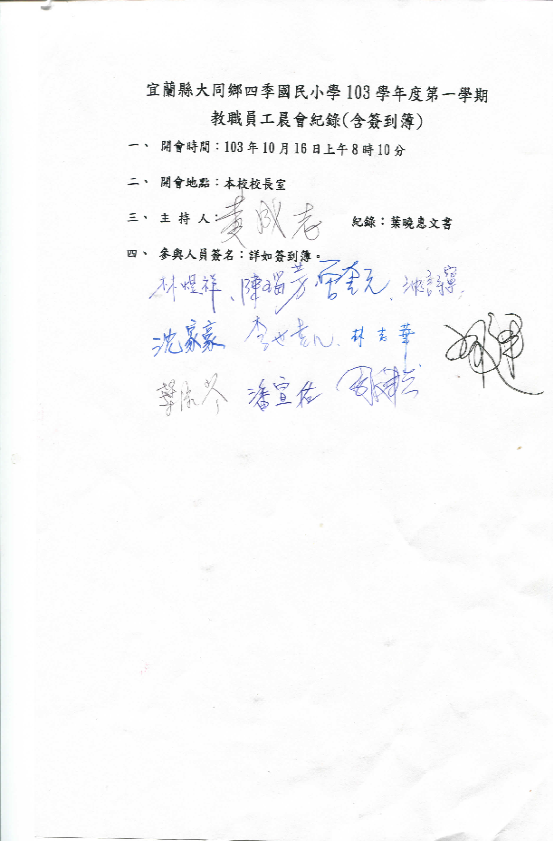 宜蘭縣大同鄉四季國民小學103學年度第一學期
教職員工晨會紀錄(含簽到簿)
一、 開會時間：103年10月16日上午8時10分
二、 開會地點：本校校長室
三、 主 持 人： 黃成志 紀錄：葉曉惠文書
四、 參與人員簽名：詳如簽到簿。
林煜祥、陳瑞芳
沈家豪 林吉華
潘宣佑